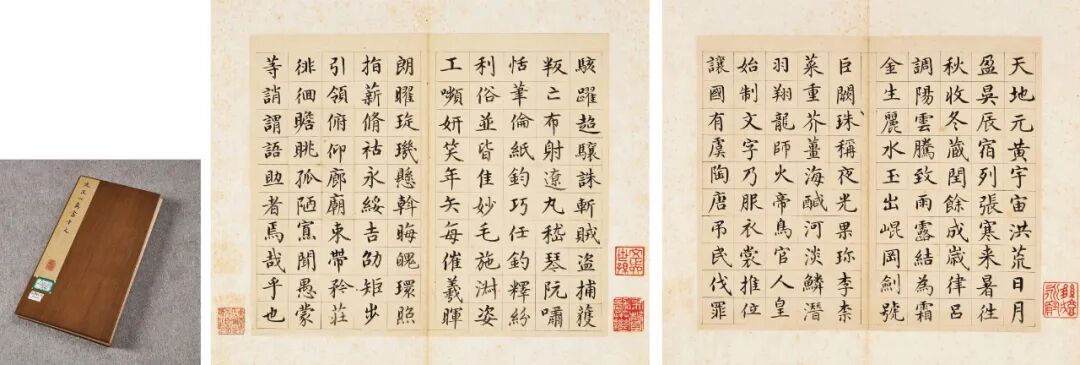 天地元黃宇宙洪荒日月
盈昃辰宿列張寒来暑往
秋收冬藏閏餘成歲律呂
調陽雲騰致雨露結為霜
金生麗水玉出崐岡劍號
巨闕珠稱夜光果珍李柰
菜重芥薑海鹹河淡鱗潛
羽翔龍師火帝鳥官人皇
始制文字乃服衣裳推位
讓國有虞陶唐弔民伐罪
駭躍超驤誅斬賊盜捕獲
叛亡布射遼丸嵇琴阮嘯
恬筆倫紙鈞巧任釣釋紛
利俗並皆佳妙毛施淑姿
工嚬妍笑年矢每催羲暉
朗曜琁璣懸斡晦魄環照
指薪脩祜永綏吉劭矩步
引領俯仰廊廟束帶矜莊
徘徊瞻眺孤陋寡聞愚蒙
等誚謂語助者焉哉乎也